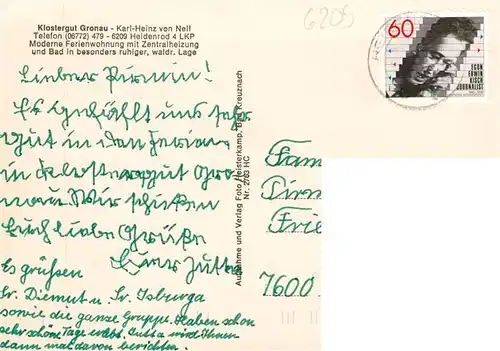 Klostergut Gronau - Karl-Heinz von Nell
Telefon (06772) 479 - 6209 Heidenrod 4 LKP
Moderne Ferienwohnung mit Zentralheizung
und Bad in besonders ruhiger, waldr. Lage
6209
60
EGON
ERWIN
KISCH
JOURNALIST
Lieber Pirmin!
Es gefällt uns sehr
gut in den Ferien
in Klostergut Gro-
nau. Wir schicken
Euch liebe Grüße
Eure Jutta
Es grüßen
Sr. Diemut u. Sr. Isburga
sowie die ganze Gruppe. Haben schon
sehr schöne Tage erlebt. Jutta wird Ihnen
dann mal davon berichten.
Aufnahme und Verlag Foto Heisterkamp, Bad Kreuznach
Nr. 2763 HC
Fam
Pirm
Frie
7600